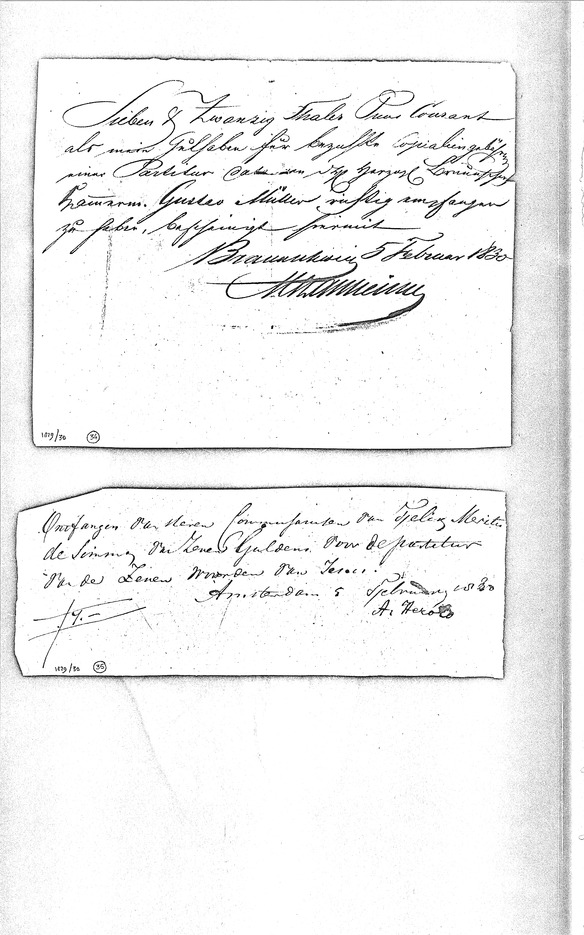 Sieben & Zwanzig Thaler Preus Courant
als mein Guthaben für bezahlte Copialiengebühren
einer Partitur von Herzogl Braunschw
Kammerm. Gustav Müller richtig empfangen
zu haben, bescheinigt hiermit
Braunschweig 5 Februar 1830
1829/30 34
Ontfangen van Heeren Commissarissen van Felix Meritis
de Somma van Zeven Guldens voor de partituur
van de Zeven Woorden van
Amsterdam 5 February 1830
A. Herold
f 7.-
1829/30 35